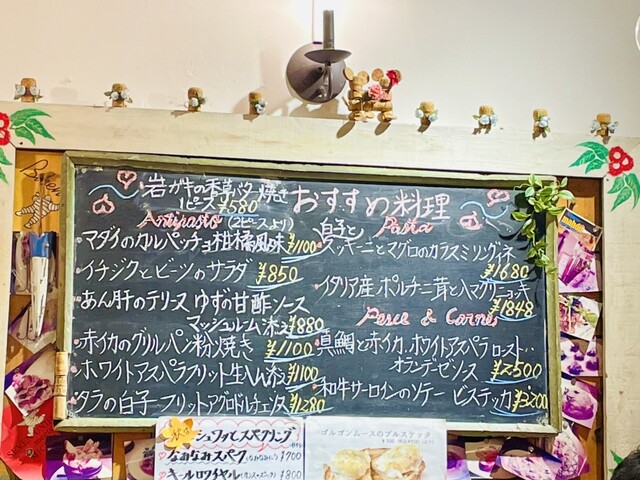 岩ガキの香草バター焼き
1ピース ¥580 (2ピースより)
おすすめ料理
Antipasto
マダイのカルパッチョ柑橘風味 ¥1100
・イチジクとビーツのサラダ ¥850
・あん肝のテリーヌ ゆずの甘酢ソース
マッシュルーム添え ¥880
・赤イカのグリル パン粉焼き ¥1100
・ホワイトアスパラフリット生ハム添え ¥1100
・タラの白子フリットアグロドルチェソース ¥1280
Pasta
・白子と
ズッキーニとマグロのカラスミリングイネ
¥1680
・イタリア産ポルチーニ茸とハマグリニョッキ
¥1848
Pesce & Carne
・真鯛と赤イカ、ホワイトアスパラロースト‥
オランデーゼソース ¥2500
・和牛サーロインのソテー ビステッカ ¥3200
シュワっとスパークリング
なみなみスパーク ¥700
キールロワイヤル ¥800
ゴルゴンムースのブルスケッタ